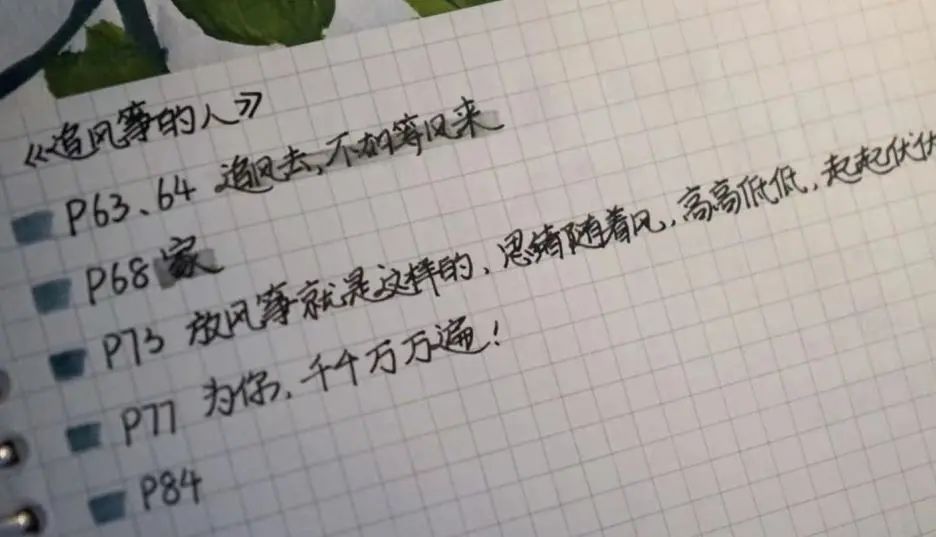 《追风筝的人》
P63、64 追风去,不如等风来
P68 家
P73 放风筝就是这样的,思绪随着风,高高低低,起起伏伏
P77 为你,千千万万遍!
P84